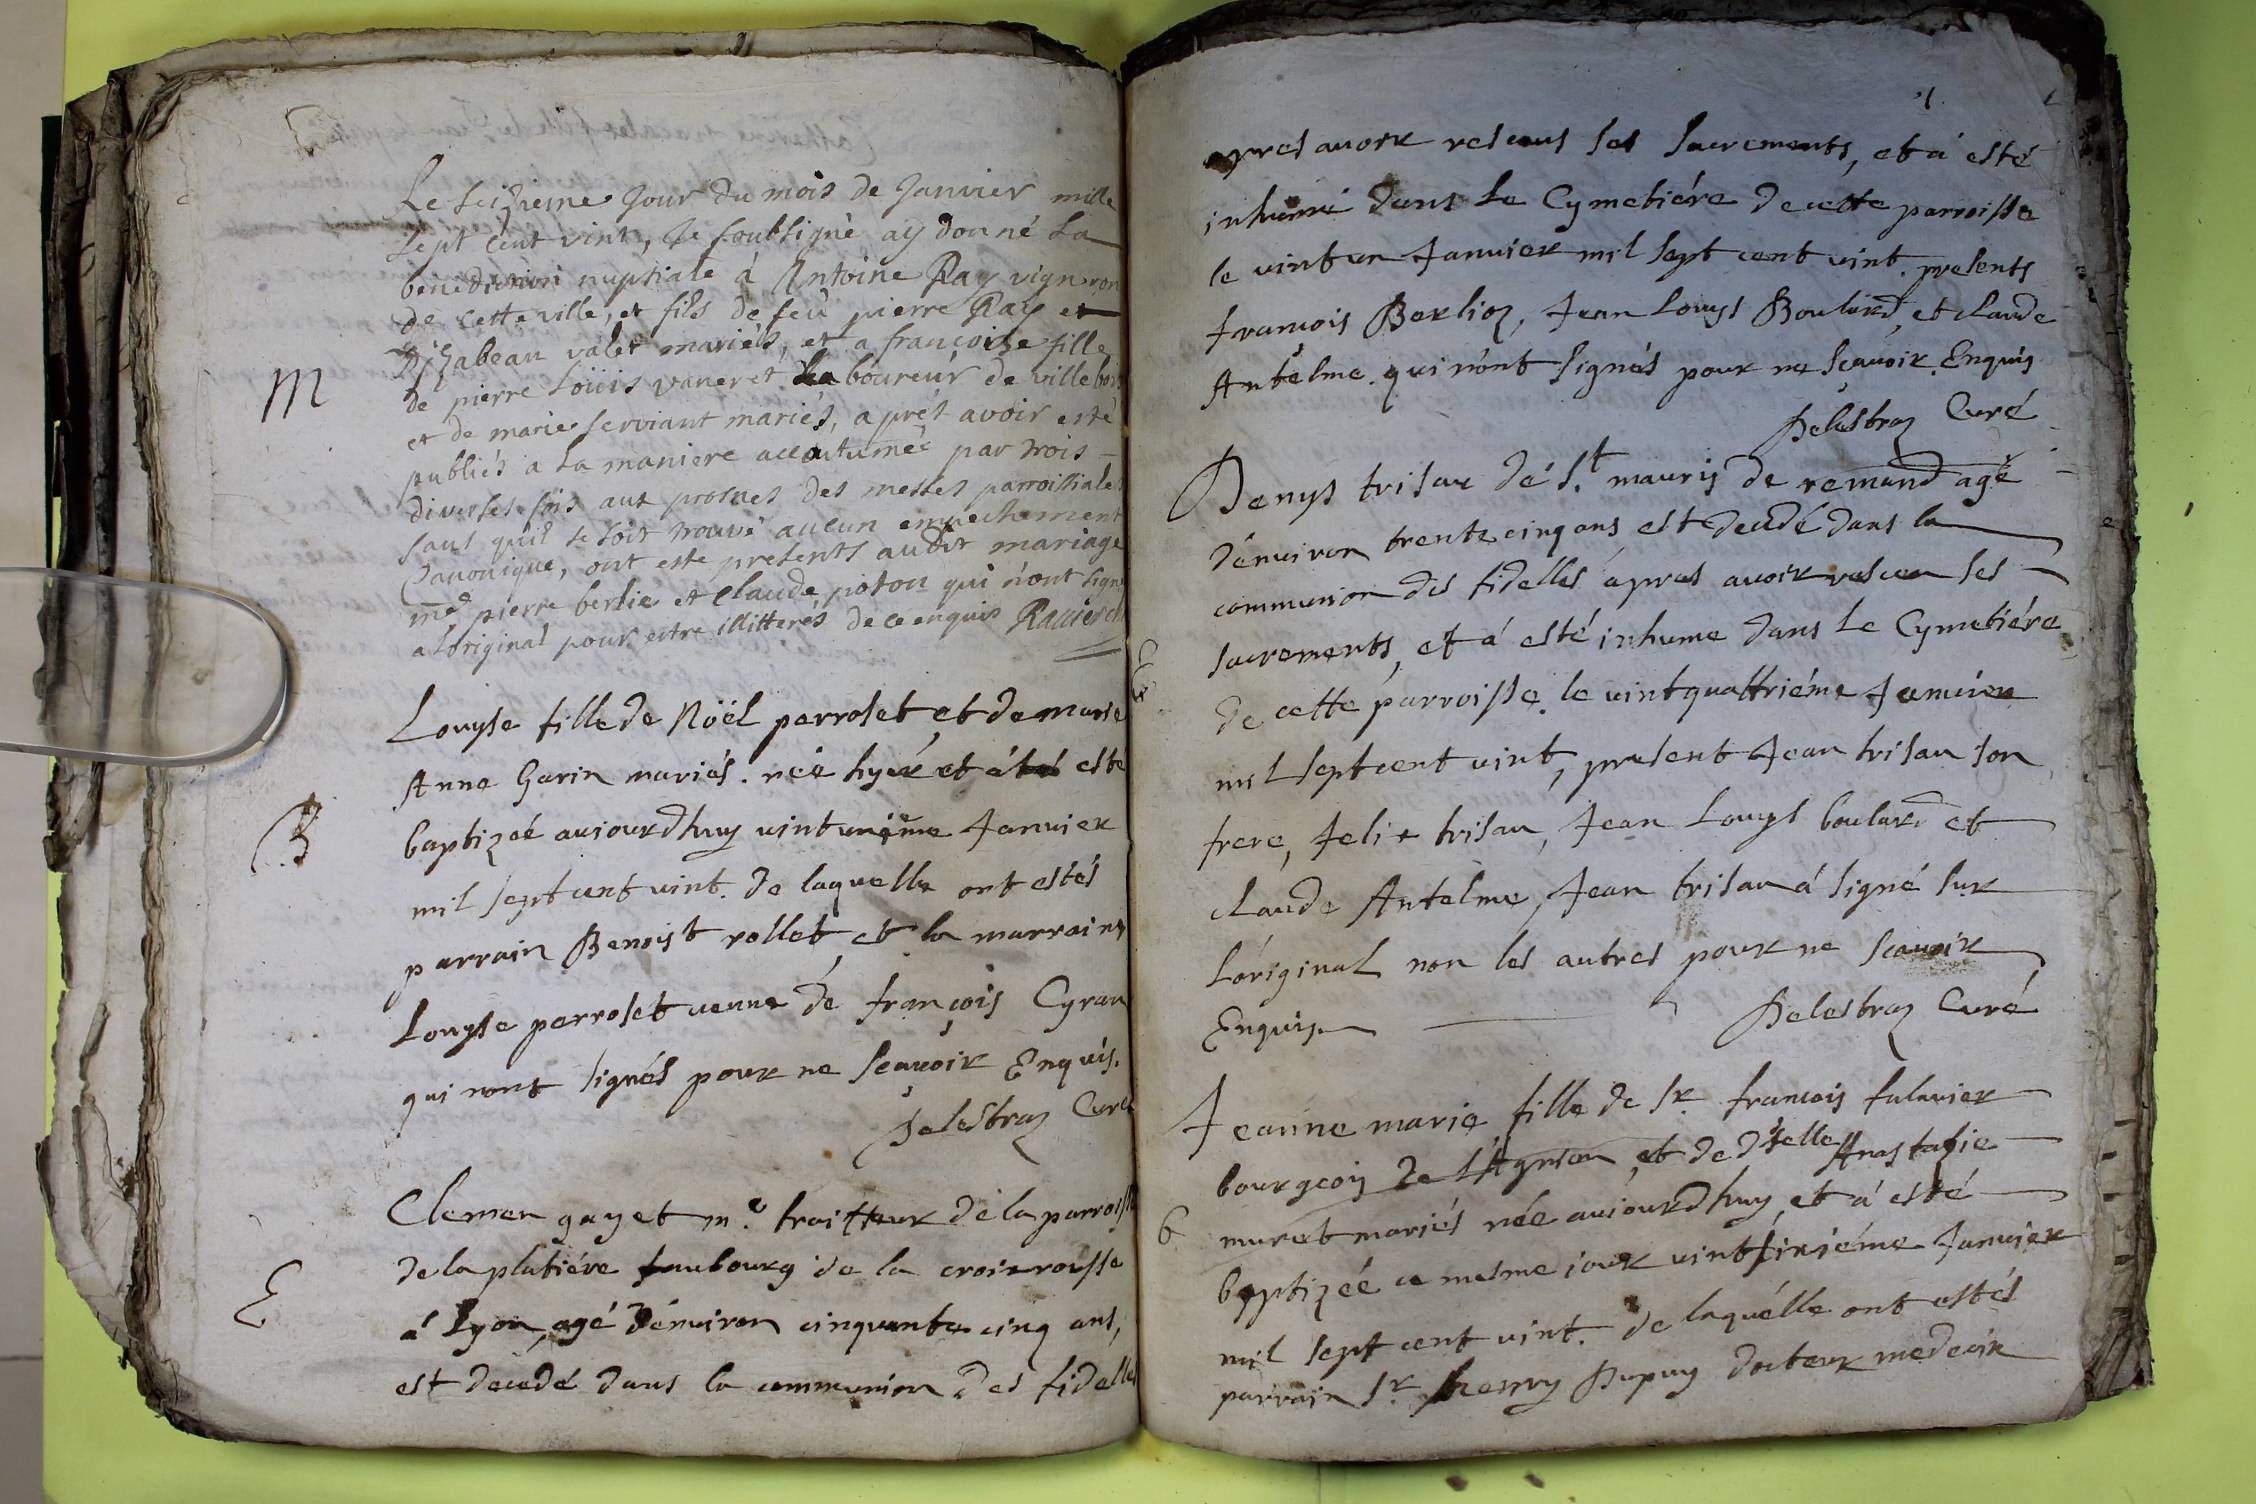 Le seizieme jour du mois de janvier mille
sept cent vint, je soubsigné ay donné la
benediction nuptiale á Antoine Ray vigneron
de cette ville, et fils de feù pierre Ray et
Dÿzabeau valet mariés, et a francoise fille
de pierre Loüis vaneret laboureur de villebois
M
et de marie serviant mariés, aprés avoir esté
publiés a la maniere accoutumée par trois
diverses fois aux prosnes des messes parroissiales
sans qu'il se soit trouvé aucun empechement
Canonique, ont esté presents audit mariage
me pierre berlie et Claude poton qui n'ont signé
a l'original pour estre illitterés de ce enquis
Louyse fille de Nöël perroset et de marie
Anne Garin mariés. née hyér et á esté
B
baptizéé auiourdhuy vintuniéme Janvier
mil sept cent vint. de laquelle ont estés
parrain Benoist rollet, et la marraine
Louyse perroset veuve dé françois Cyran
qui nont signés pour ne sçauoir Enquis.
Delestraz Curé
Clemen gayet me. traitteur dé la parroisse
de la platiére faubourg de la croixrousse
E
á Lyon, agé dénuiron cinquante cinq ans,
est decedé dans la communion des fidelles
1
apres auoir resceus ses sacrements, et á esté
inhumé dans le Cymetiére de cette parroisse
le vintun Januier mil sept cent vint. presents
francois Berlioz, Jean Louys Boulard, et claude
Antelme. qui n'ont signés pour ne sçauoir. Enquis
Delestraz Curé
Denys trisau dé St. mauris de remand agé
dénuiron trente cinq ans est decedé dans la
communion des fidelles ápres auoir resceu ses
sacrements, et á esté inhume dans le Cymetiére
E
de cette parroisse. le vintquattriéme Januier
mil sept cent vint, présent Jean trisau son
frere, felix trisau, Jean Louys boulard et
claude Antelme, Jean trisau á signé sur
Lóriginal non les autres pour ne scauoir
Enquis.
Delestraz Curé
Jeanne marie fille de Sr. francois falauier
bourgeois de L'Agnieu, et de dselle Anastasie
6
murat mariés née auiourdhuy, et á esté
baptizéé ce mesme iour vintsixiéme Januier
mil sept cent vint. de laquélle ont estés
parrain Sr. henry Dupuy docteur medecin